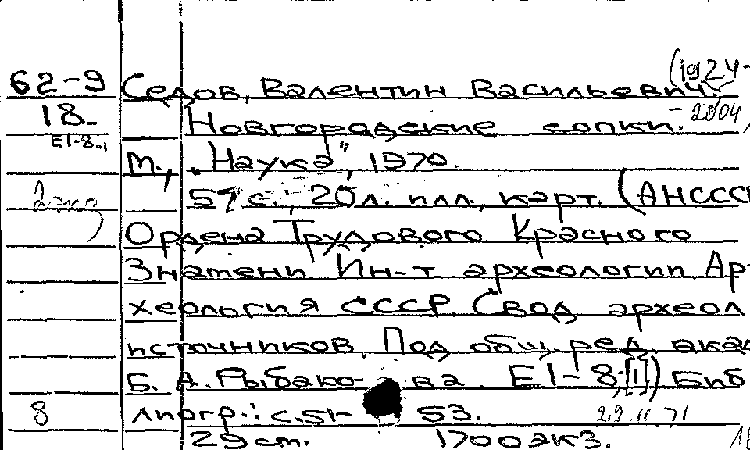 62-9 Седов, Валентин Васильевич (1924-
18. Новгородские сопки. - 2004
Е1-8.,
М., "Наука", 1970.
57 с., 20 л. илл., карт. (АНССС
Ордена Трудового Красного
Знамени Ин-т археологии Ар
хеология СССР Свод археол
источников. Под общ. ред. акад
Б. А. Рыбако- ва. Е1-8,[1]) Биб
8 лиогр.: с.51- 53.
29.11.71
29 cm. 1700 экз.